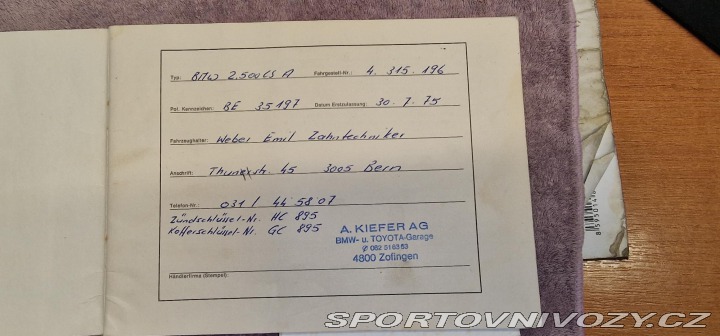 Typ: BMW 2.500 CS A Fahrgestell-Nr.: 4. 315. 196
Pol. Kennzeichen: BE 35197 Datum Erstzulassung: 30. 7. 75
Fahrzeughalter: Weber Emil Zahntechniker
Anschrift: Thunstr. 45 3005 Bern
Telefon-Nr.: 031 / 44 58 07
Zündschlüssel-Nr. HC 895
Kofferschlüssel-Nr. GC 895
A. KIEFER AG
BMW- u. TOYOTA-Garage
4800 Zofingen
Händlerfirma (Stempel):
SPORTOVNIVOZY.CZ